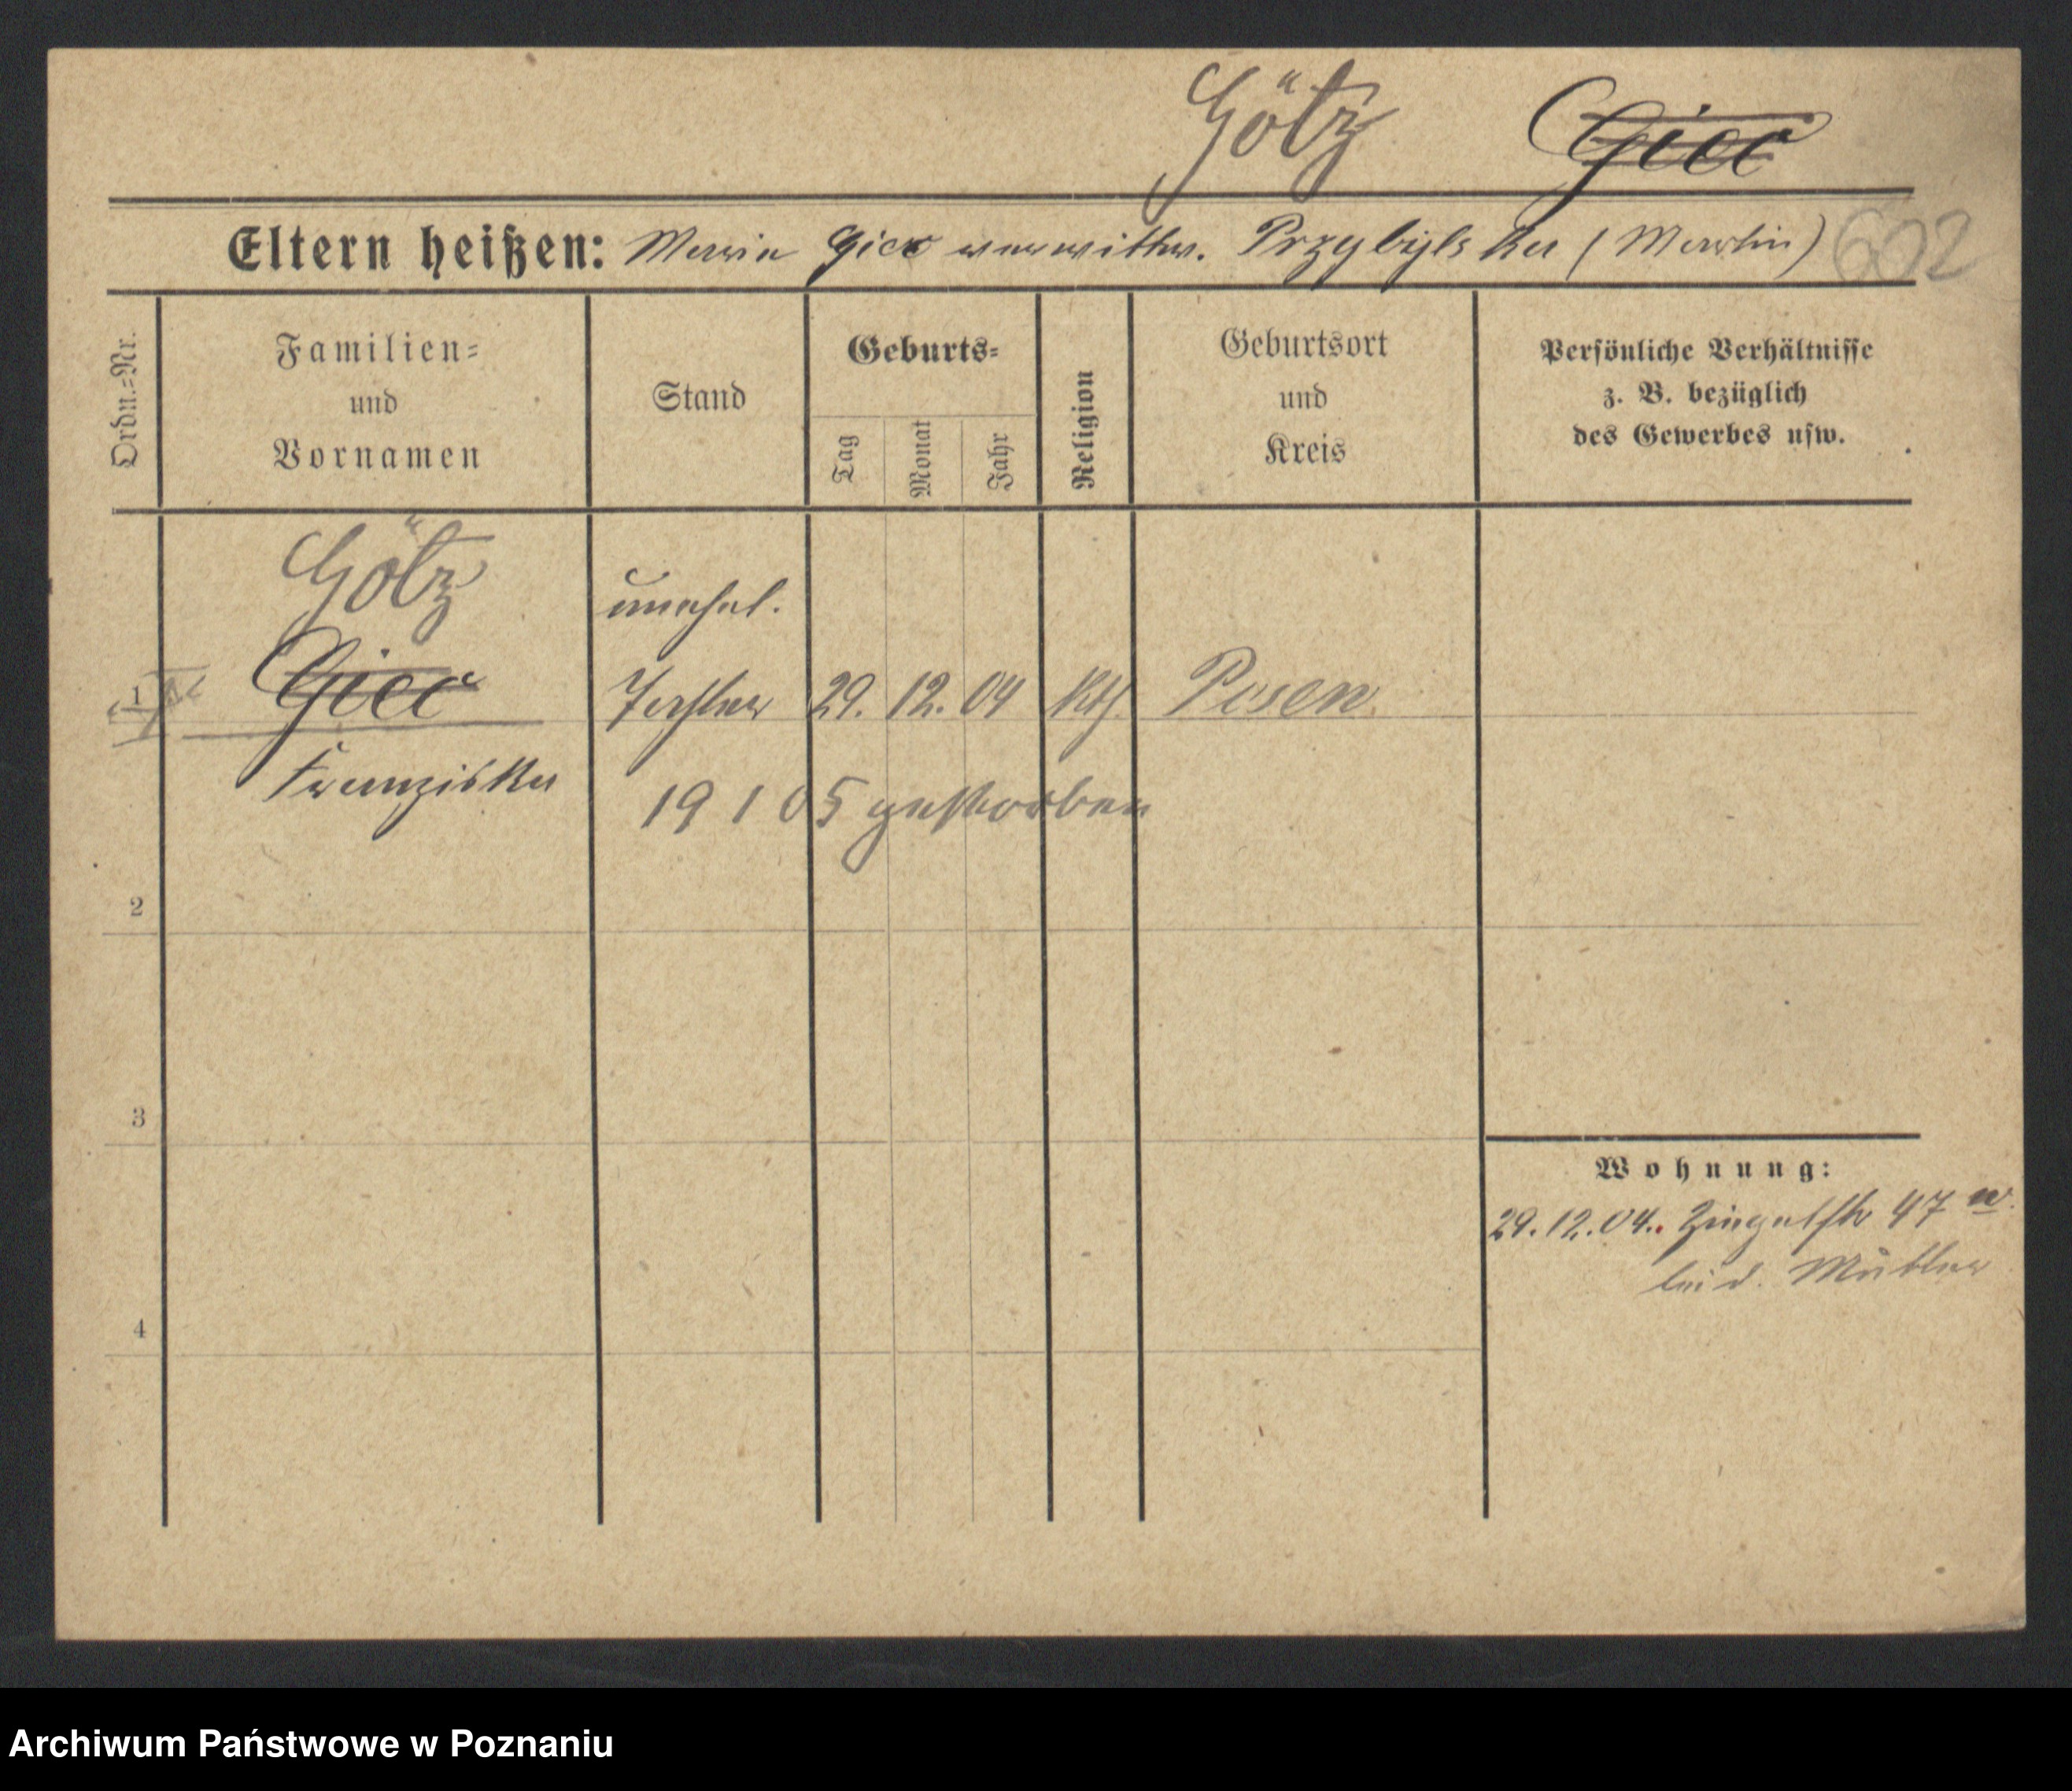 Götz Giec
Eltern heißen: Maria Giec verwittw. Przybylska (Martin) 602
Ordn.=Nr.
Familien=
und
Vornamen
Stand
Geburts=
Tag
Monat
Jahr
Religion
Geburtsort
und
Kreis
Persönliche Verhältnisse
z. B. bezüglich
des Gewerbes usw.
Götz
unehel.
1 Giec Tochter 29. 12. 04 kth. Posen
Franziska
19 1 05 gestorben
2
3
Wohnung:
29.12.04. Ziegelstr 47
bei d. Mutter
4
Archiwum Państwowe w Poznaniu